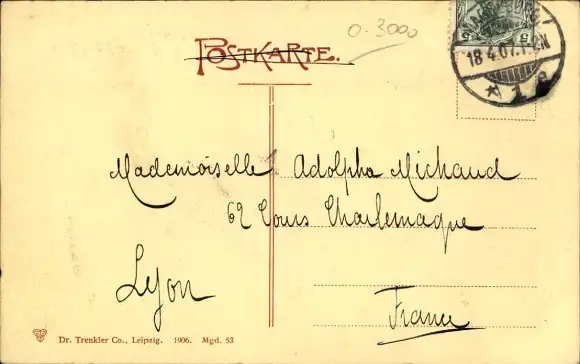 0-3000
POSTKARTE.
5 5
18.4.07.1-2N
* 1 e
Mademoiselle Adolpha Michaud
62 Cours Charlemagne
Lyon
France
Dr. Trenkler Co., Leipzig. 1906. Mgd. 53